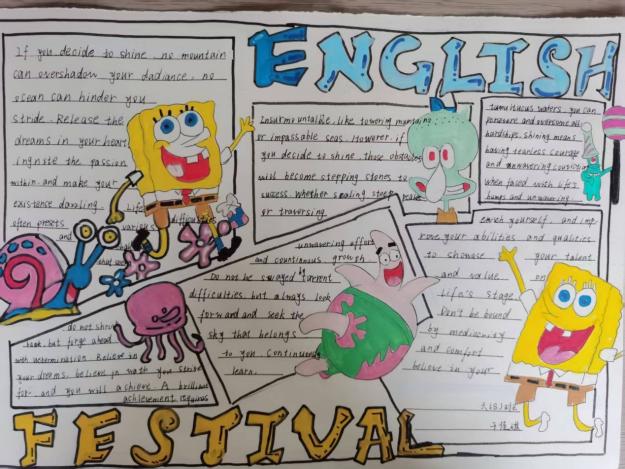 ENGLISH
If you decide to shine, no mountain
can overshadow your dadiance, no
ocean can hinder you
stride. Release the
dreams in your heart
ingnite the passion
within and make your
existence dazzling. Life
often presets various difficulties
and
Insurmountable, like towering mountains
or impassable seas. However, if
you decide to shine, those obstacles
will become stepping stones to
success, whether scaling steep peaks
or traversing
tumultuous waters, you can
persevere and overcome all
hardships, shining means
having fearless courage
and unwavering conviction
when faced with life's
bumps and unwavering
unwavering effort
and countinuous growth
Do not be swayed by current
difficulties, but always look
forward and seek the
sky that belongs
to you. Continuously
learn.
enrich yourself, and imp-
rove your abilities and qualities
to showase your talent
and value on
Life's stage.
Don't be bound
by mediocrity
and comfort
believe in your
do not shrink
back, but forge ahead
with determination. Believe in
your dreams, believe in what you strive
for, and you will achieve. A brilliant
achievement requires
FESTIVAL